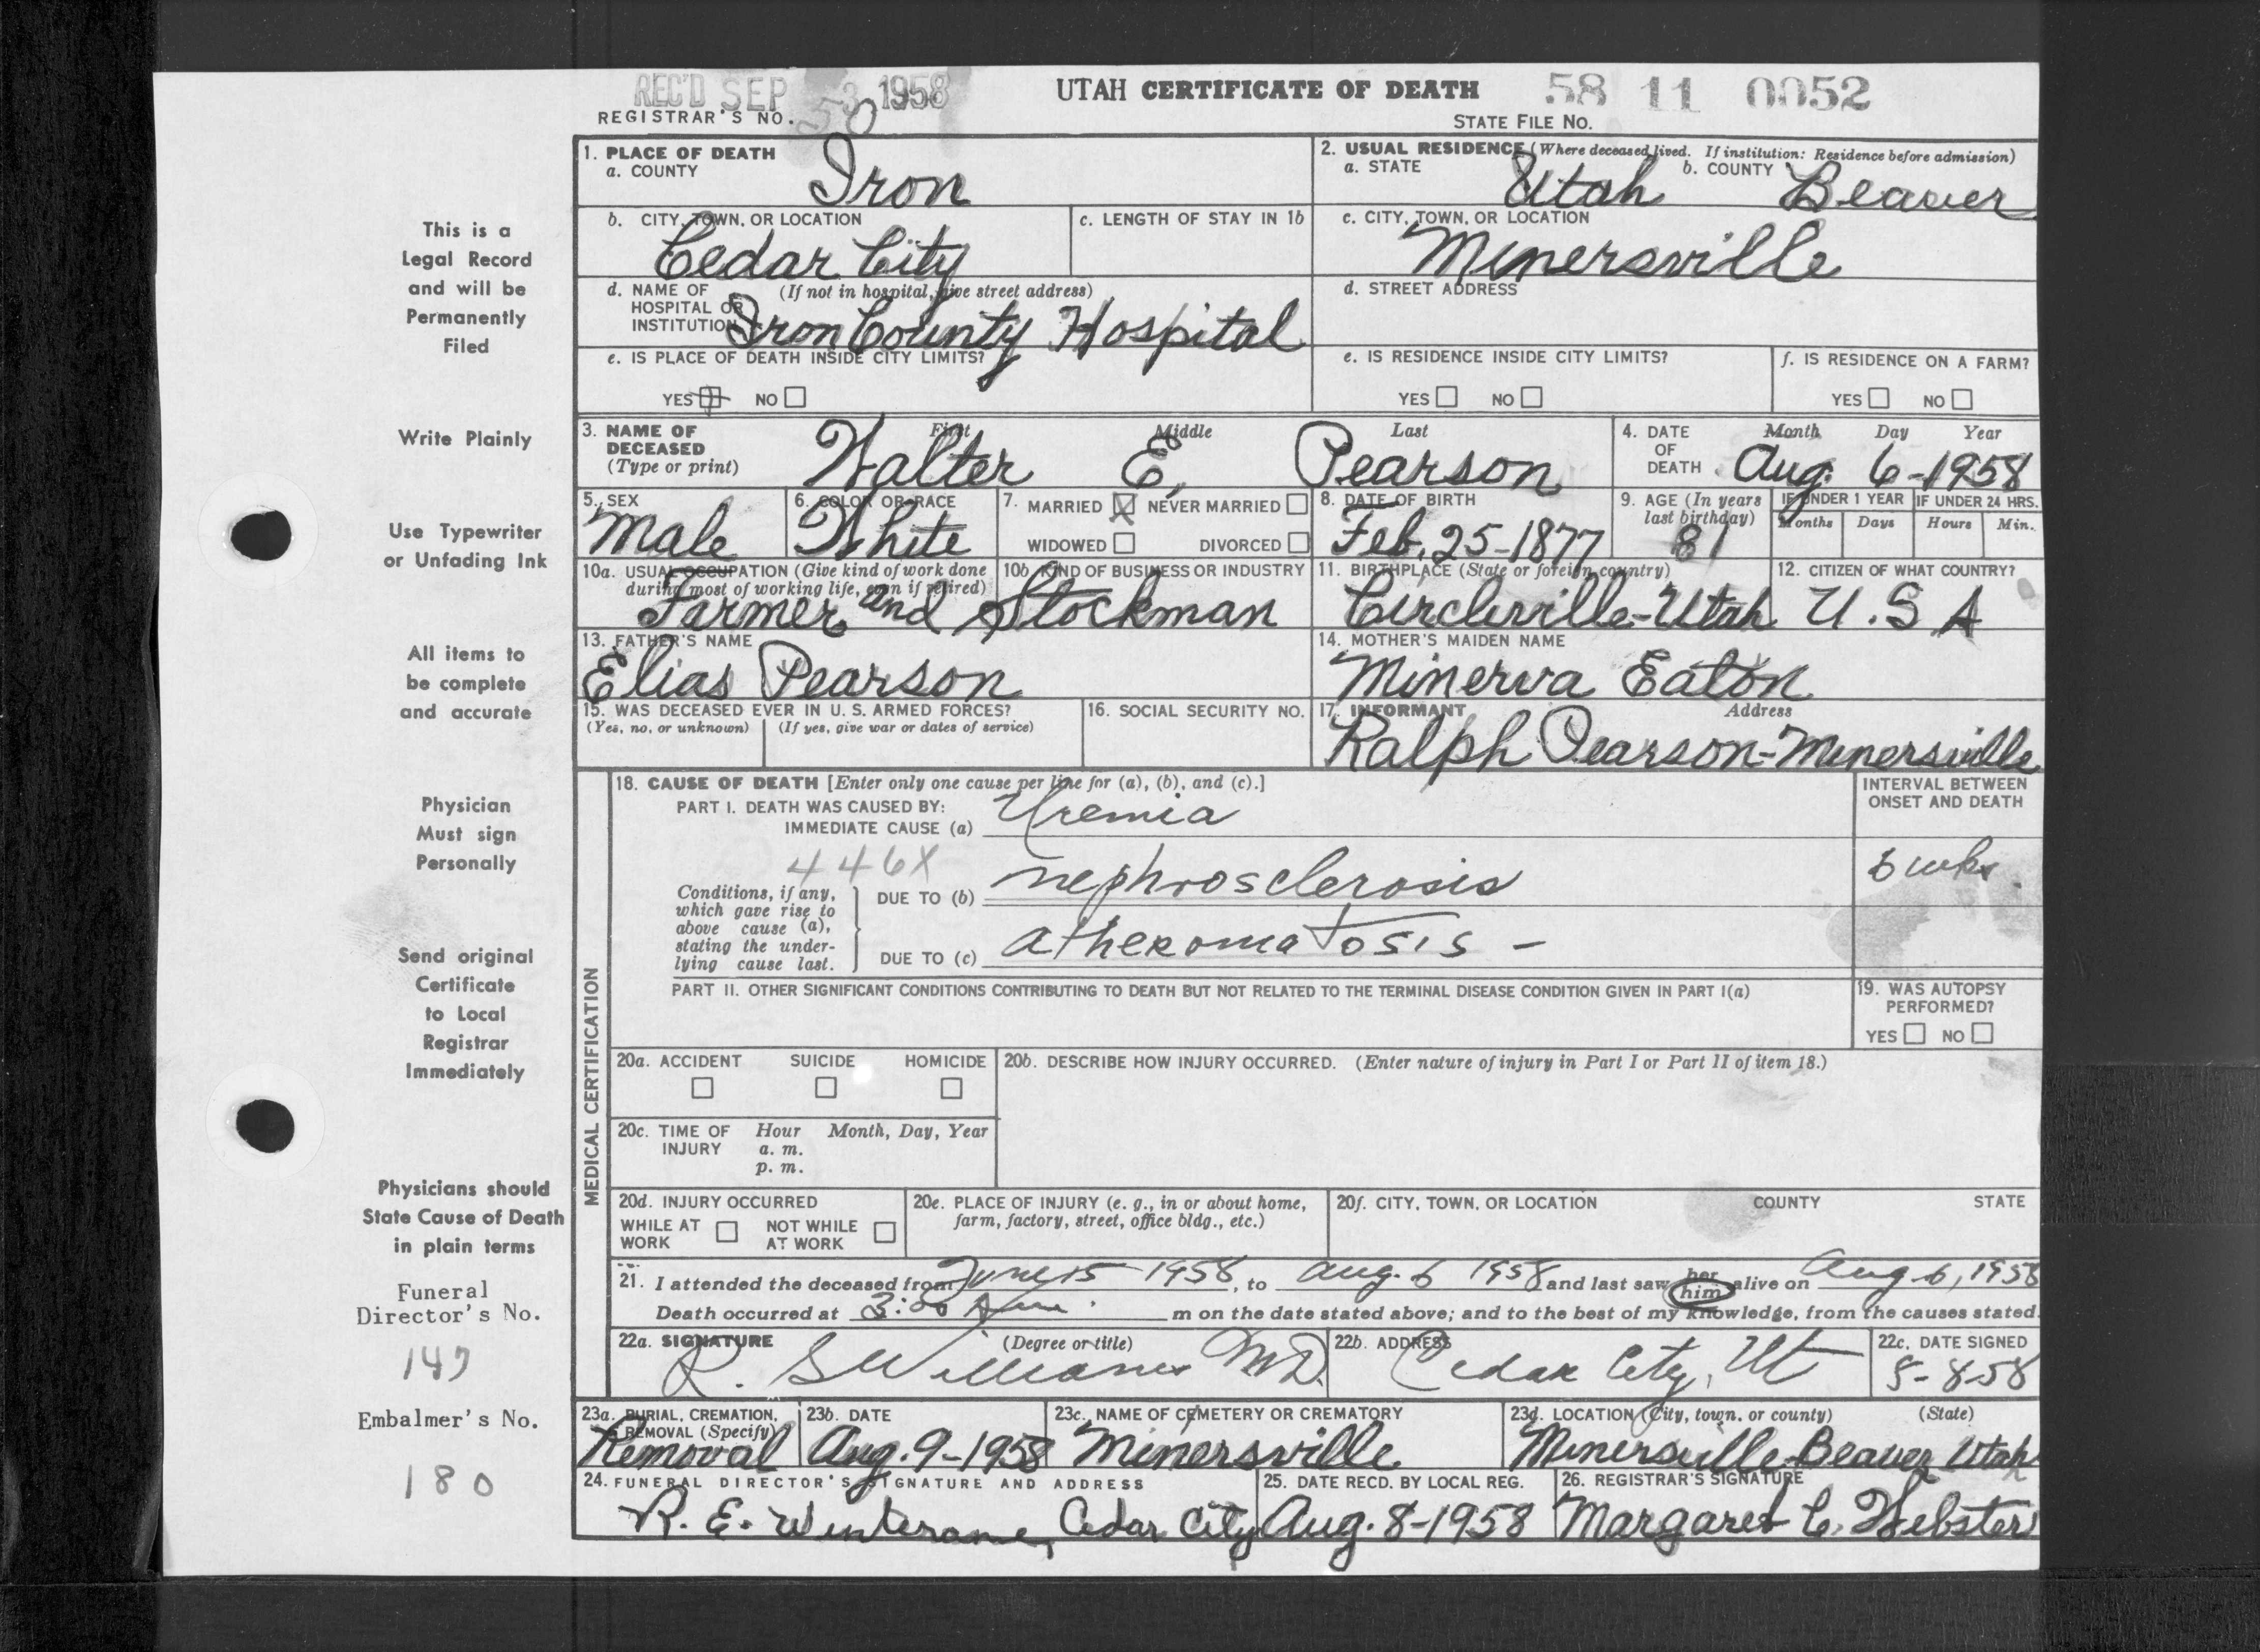 REC'D SEP 3 1958
UTAH CERTIFICATE OF DEATH 58 11 0052
REGISTRAR'S NO. 50
STATE FILE NO.
1. PLACE OF DEATH
a. COUNTY Iron
2. USUAL RESIDENCE (Where deceased lived. If institution: Residence before admission)
a. STATE Utah b. COUNTY Beaver
b. CITY, TOWN, OR LOCATION
Cedar City
c. LENGTH OF STAY IN 1b
c. CITY, TOWN, OR LOCATION
Minersville
d. NAME OF (If not in hospital, give street address)
HOSPITAL OR
INSTITUTION Iron County Hospital
d. STREET ADDRESS
e. IS PLACE OF DEATH INSIDE CITY LIMITS?
YES NO
e. IS RESIDENCE INSIDE CITY LIMITS?
YES NO
f. IS RESIDENCE ON A FARM?
YES NO
3. NAME OF DECEASED
(Type or print)
First Middle Last
Walter E. Pearson
4. DATE OF DEATH
Month Day Year
Aug. 6-1958
5. SEX
Male
6. COLOR OR RACE
White
7. MARRIED NEVER MARRIED
WIDOWED DIVORCED
8. DATE OF BIRTH
Feb. 25-1877
9. AGE (In years
last birthday)
81
IF UNDER 1 YEAR
Months Days
IF UNDER 24 HRS.
Hours Min.
10a. USUAL OCCUPATION (Give kind of work done
during most of working life, even if retired)
10b. KIND OF BUSINESS OR INDUSTRY
Farmer and Stockman
11. BIRTHPLACE (State or foreign country)
Circleville-Utah
12. CITIZEN OF WHAT COUNTRY?
U.S A
13. FATHER'S NAME
Elias Pearson
14. MOTHER'S MAIDEN NAME
Minerva Eaton
15. WAS DECEASED EVER IN U. S. ARMED FORCES?
(Yes, no, or unknown) (If yes, give war or dates of service)
16. SOCIAL SECURITY NO.
17. INFORMANT Address
Ralph Pearson-Minersville
MEDICAL CERTIFICATION
18. CAUSE OF DEATH [Enter only one cause per line for (a), (b), and (c).]
PART I. DEATH WAS CAUSED BY:
IMMEDIATE CAUSE (a) Uremia
INTERVAL BETWEEN
ONSET AND DEATH
446X
Conditions, if any,
which gave rise to
above cause (a),
stating the under-
lying cause last.
DUE TO (b) nephrosclerosis
wks.
DUE TO (c) atheromatosis -
PART II. OTHER SIGNIFICANT CONDITIONS CONTRIBUTING TO DEATH BUT NOT RELATED TO THE TERMINAL DISEASE CONDITION GIVEN IN PART I(a)
19. WAS AUTOPSY
PERFORMED?
YES NO
20a. ACCIDENT SUICIDE HOMICIDE
20b. DESCRIBE HOW INJURY OCCURRED. (Enter nature of injury in Part I or Part II of item 18.)
20c. TIME OF Hour Month, Day, Year
INJURY a. m.
p. m.
20d. INJURY OCCURRED
WHILE AT WORK NOT WHILE AT WORK
20e. PLACE OF INJURY (e. g., in or about home,
farm, factory, street, office bldg., etc.)
20f. CITY, TOWN, OR LOCATION COUNTY STATE
21. I attended the deceased from June 15 1958, to Aug. 6 1958 and last saw her him alive on Aug 6, 1958
Death occurred at 3:00 A.m. m on the date stated above; and to the best of my knowledge, from the causes stated.
22a. SIGNATURE (Degree or title)
R. S Williams M.D.
22b. ADDRESS
Cedar City, Ut
22c. DATE SIGNED
8-8-58
23a. BURIAL, CREMATION,
REMOVAL (Specify)
Removal
23b. DATE
Aug. 9-1958
23c. NAME OF CEMETERY OR CREMATORY
Minersville
23d. LOCATION (City, town, or county) (State)
Minersville-Beaver Utah
24. FUNERAL DIRECTOR'S SIGNATURE AND ADDRESS
R. E. Cedar City
25. DATE RECD. BY LOCAL REG.
Aug. 8-1958
26. REGISTRAR'S SIGNATURE
Margaret C. Webster
This is a
Legal Record
and will be
Permanently
Filed
Write Plainly
Use Typewriter
or Unfading Ink
All items to
be complete
and accurate
Physician
Must sign
Personally
Send original
Certificate
to Local
Registrar
Immediately
Physicians should
State Cause of Death
in plain terms
Funeral
Director's No.
147
Embalmer's No.
180